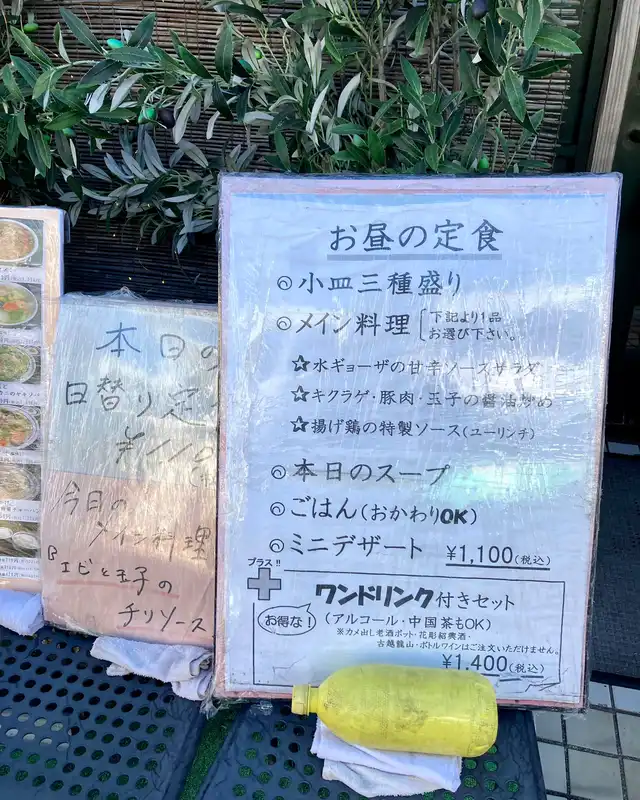 お昼の定食
◎小皿三種盛り
◎メイン料理 下記より1品 お選び下さい。
☆水ギョーザの甘辛ソースサラダ
☆キクラゲ・豚肉・玉子の醤油炒め
☆揚げ鶏の特製ソース(ユーリンチ)
◎本日のスープ
◎ごはん(おかわりOK)
◎ミニデザート ¥1,100(税込)
プラス!!
ワンドリンク付きセット
お得な!
(アルコール・中国茶もOK)
※カメ出し老酒ポット・花彫紹興酒・
古越龍山・ボトルワインはご注文いただけません。
¥1,400(税込)
本日の
日替り定
今日の
メイン料理
エビと玉子の
チリソース